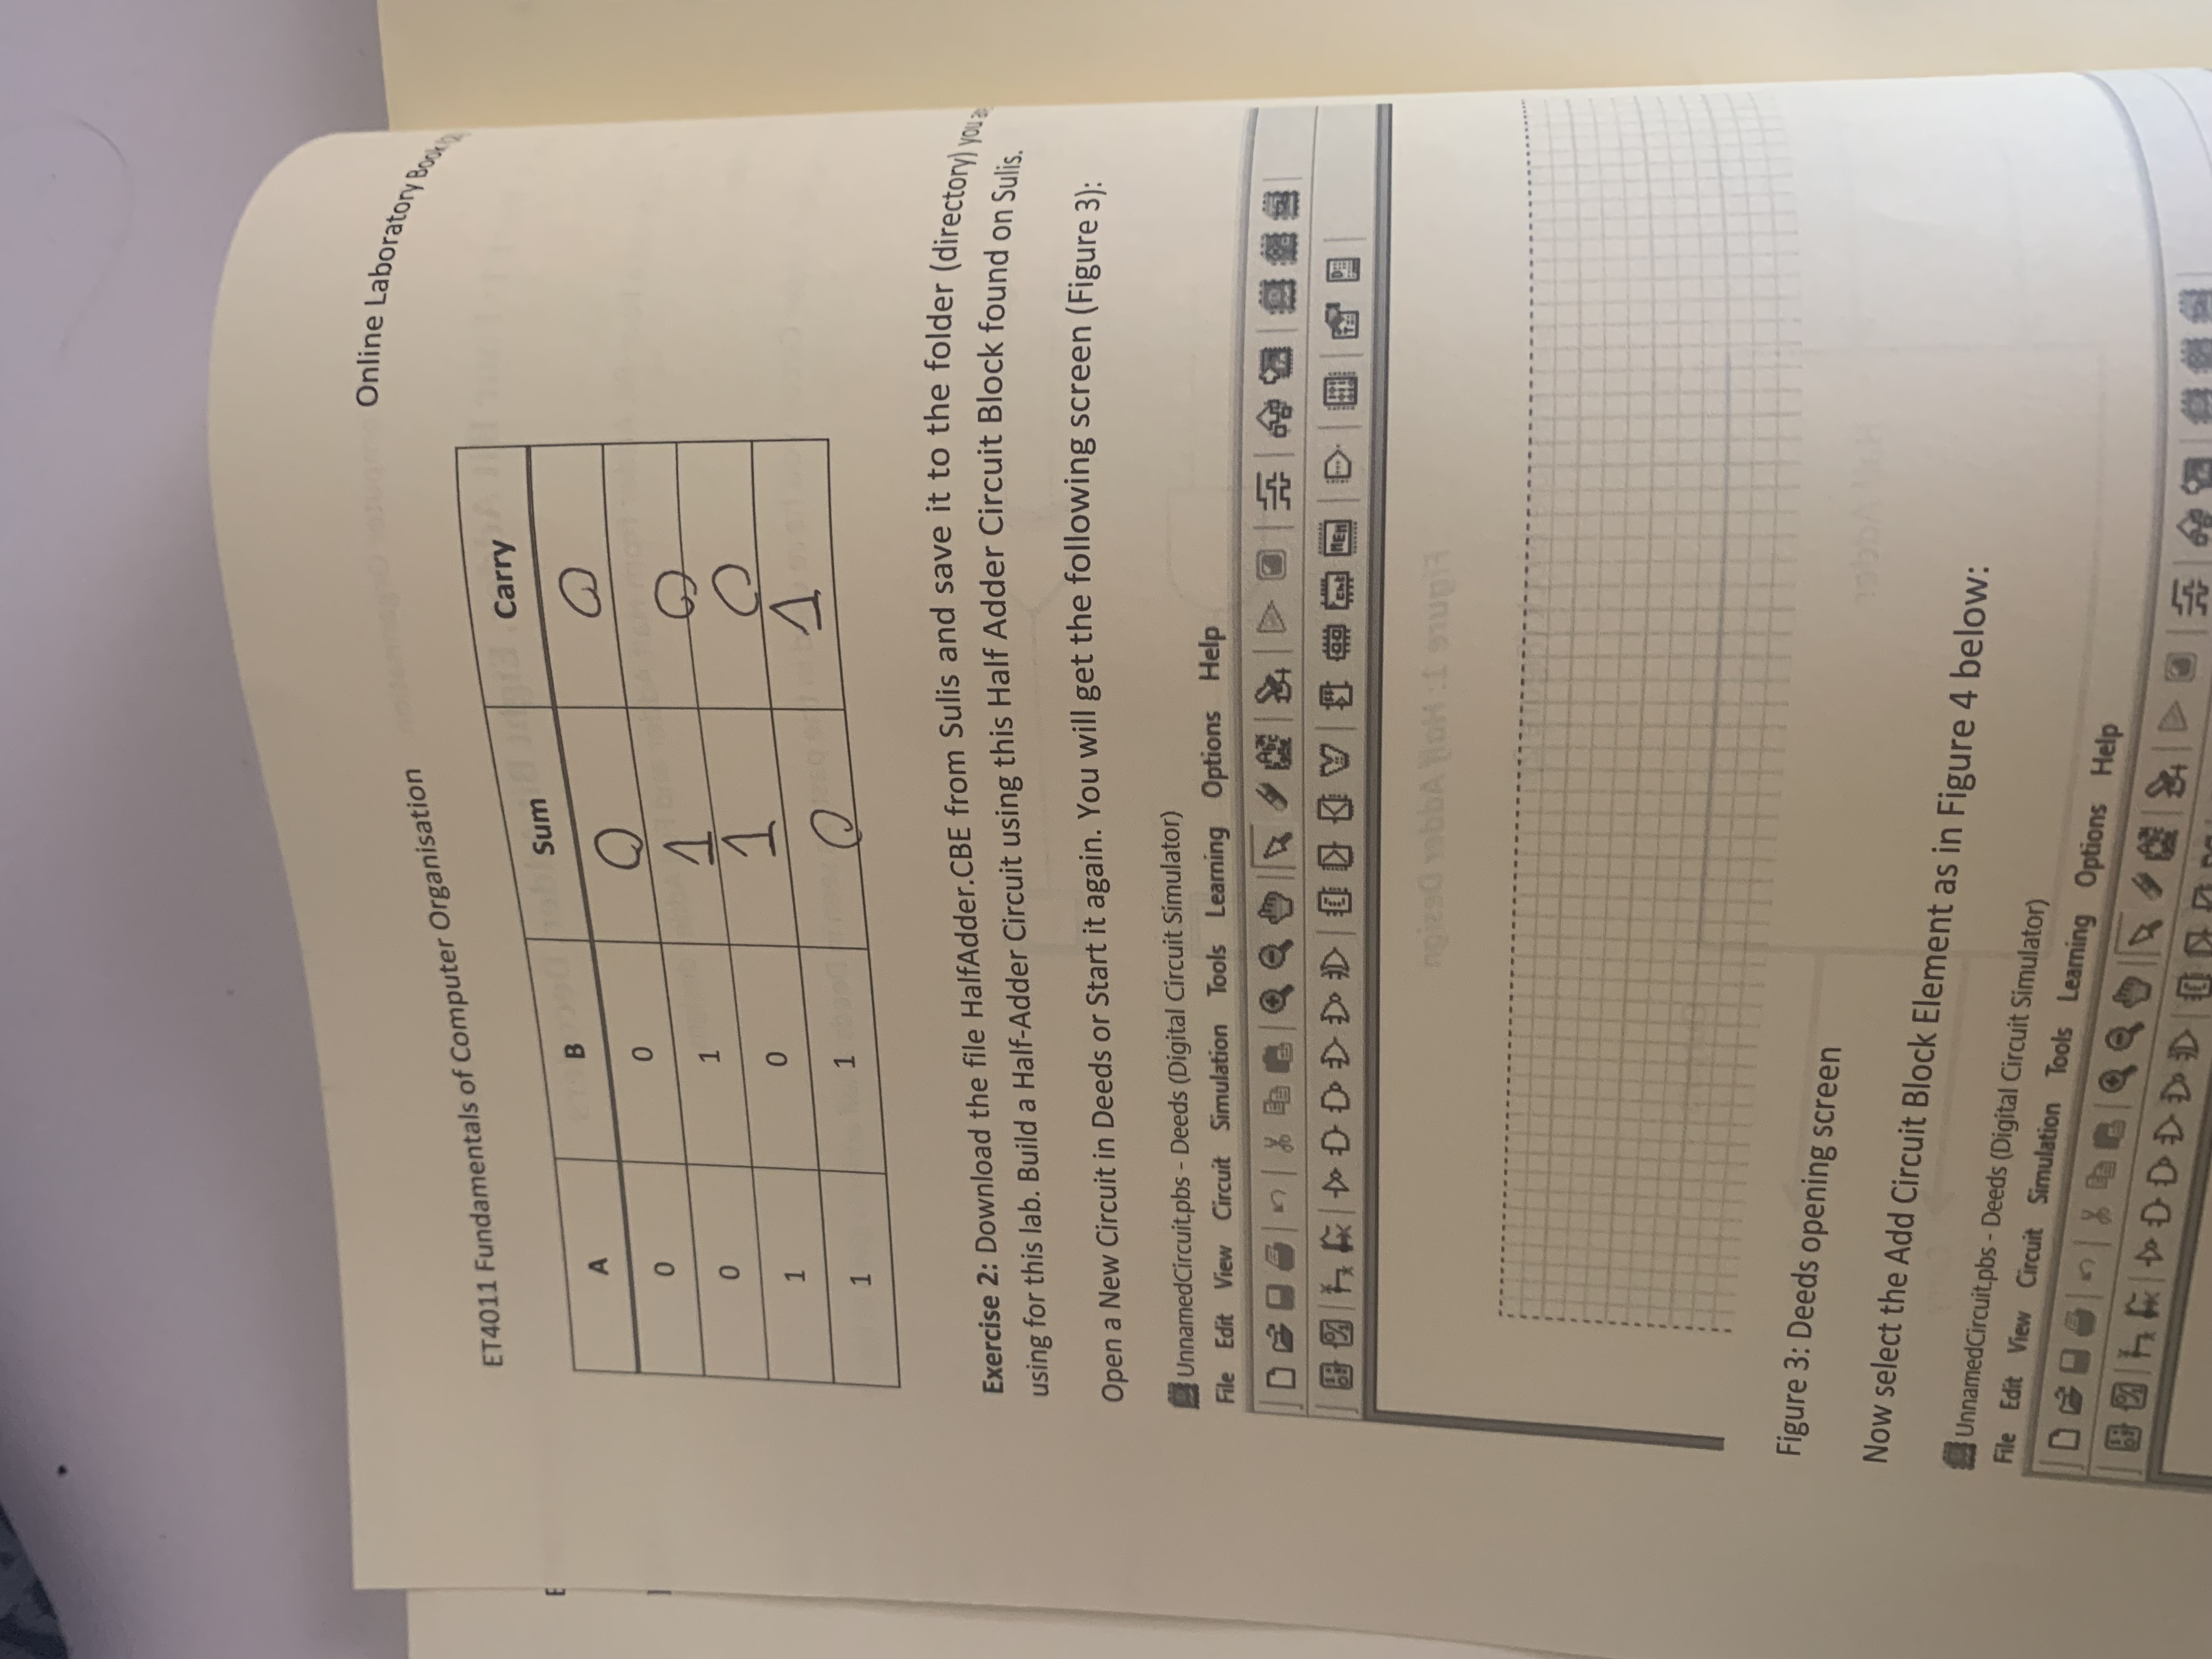 Online Laboratory Book
ET4011 Fundamentals of Computer Organisation
A B Sum Carry
0 0 0 0
0 1 1 0
1 0 1 0
1 1 0 1
Exercise 2: Download the file HalfAdder.CBE from Sulis and save it to the folder (directory) you
using for this lab. Build a Half-Adder Circuit using this Half Adder Circuit Block found on Sulis.
Open a New Circuit in Deeds or Start it again. You will get the following screen (Figure 3):
UnnamedCircuit.pbs - Deeds (Digital Circuit Simulator)
File Edit View Circuit Simulation Tools Learning Options Help
Figure 3: Deeds opening screen
Now select the Add Circuit Block Element as in Figure 4 below:
UnnamedCircuit.pbs - Deeds (Digital Circuit Simulator)
File Edit View Circuit Simulation Tools Learning Options Help